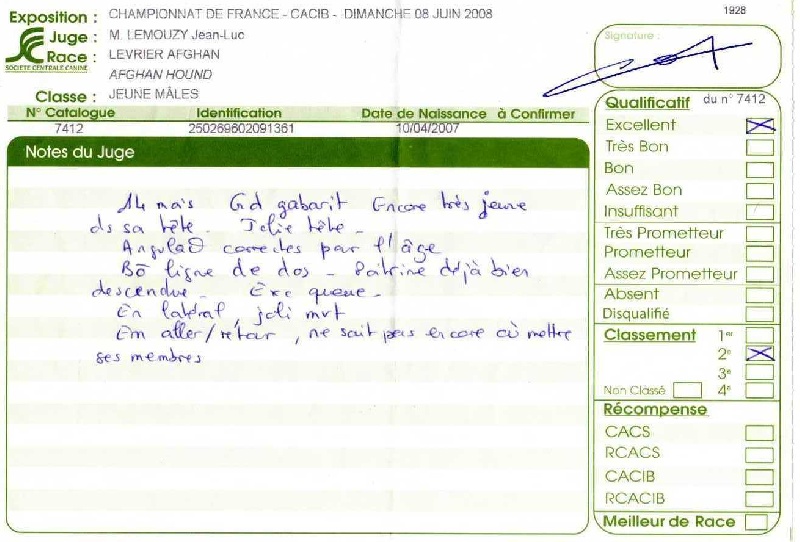 Exposition : CHAMPIONNAT DE FRANCE - CACIB - DIMANCHE 08 JUIN 2008
Juge : M. LEMOUZY Jean-Luc
Race : LEVRIER AFGHAN
AFGHAN HOUND
SOCIETE CENTRALE CANINE
Classe : JEUNE MÂLES
N° Catalogue Identification Date de Naissance à Confirmer
7412 250269602091361 10/04/2007
Notes du Juge
14 mois Gd gabarit Encore très jeune
ds sa tête. Jolie tête -
Angula° correctes par l'âge
Bō ligne de dos - Poitrine déjà bien
descendue - Exc queue -
En latéral, joli mvt
Em aller/retour, ne sait pas encore où mettre
ses membres
1928
Signature :
Qualificatif du n° 7412
Excellent
Très Bon
Bon
Assez Bon
Insuffisant
Très Prometteur
Prometteur
Assez Prometteur
Absent
Disqualifié
Classement 1er
2e
3e
Non Classé 4e
Récompense
CACS
RCACS
CACIB
RCACIB
Meilleur de Race